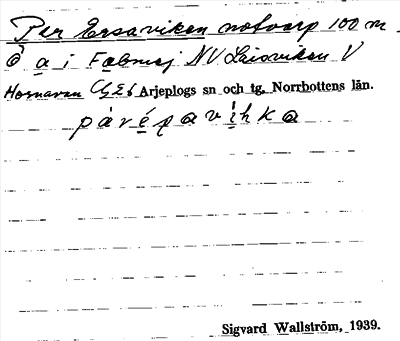 Per Ersaviken notvarp 100 m
Ö a i Falmsj NV Laisviken V
Hornavan Arjeplogs sn och tg, Norrbottens län.
pàrépavìhka
Sigvard Wallström, 1939.